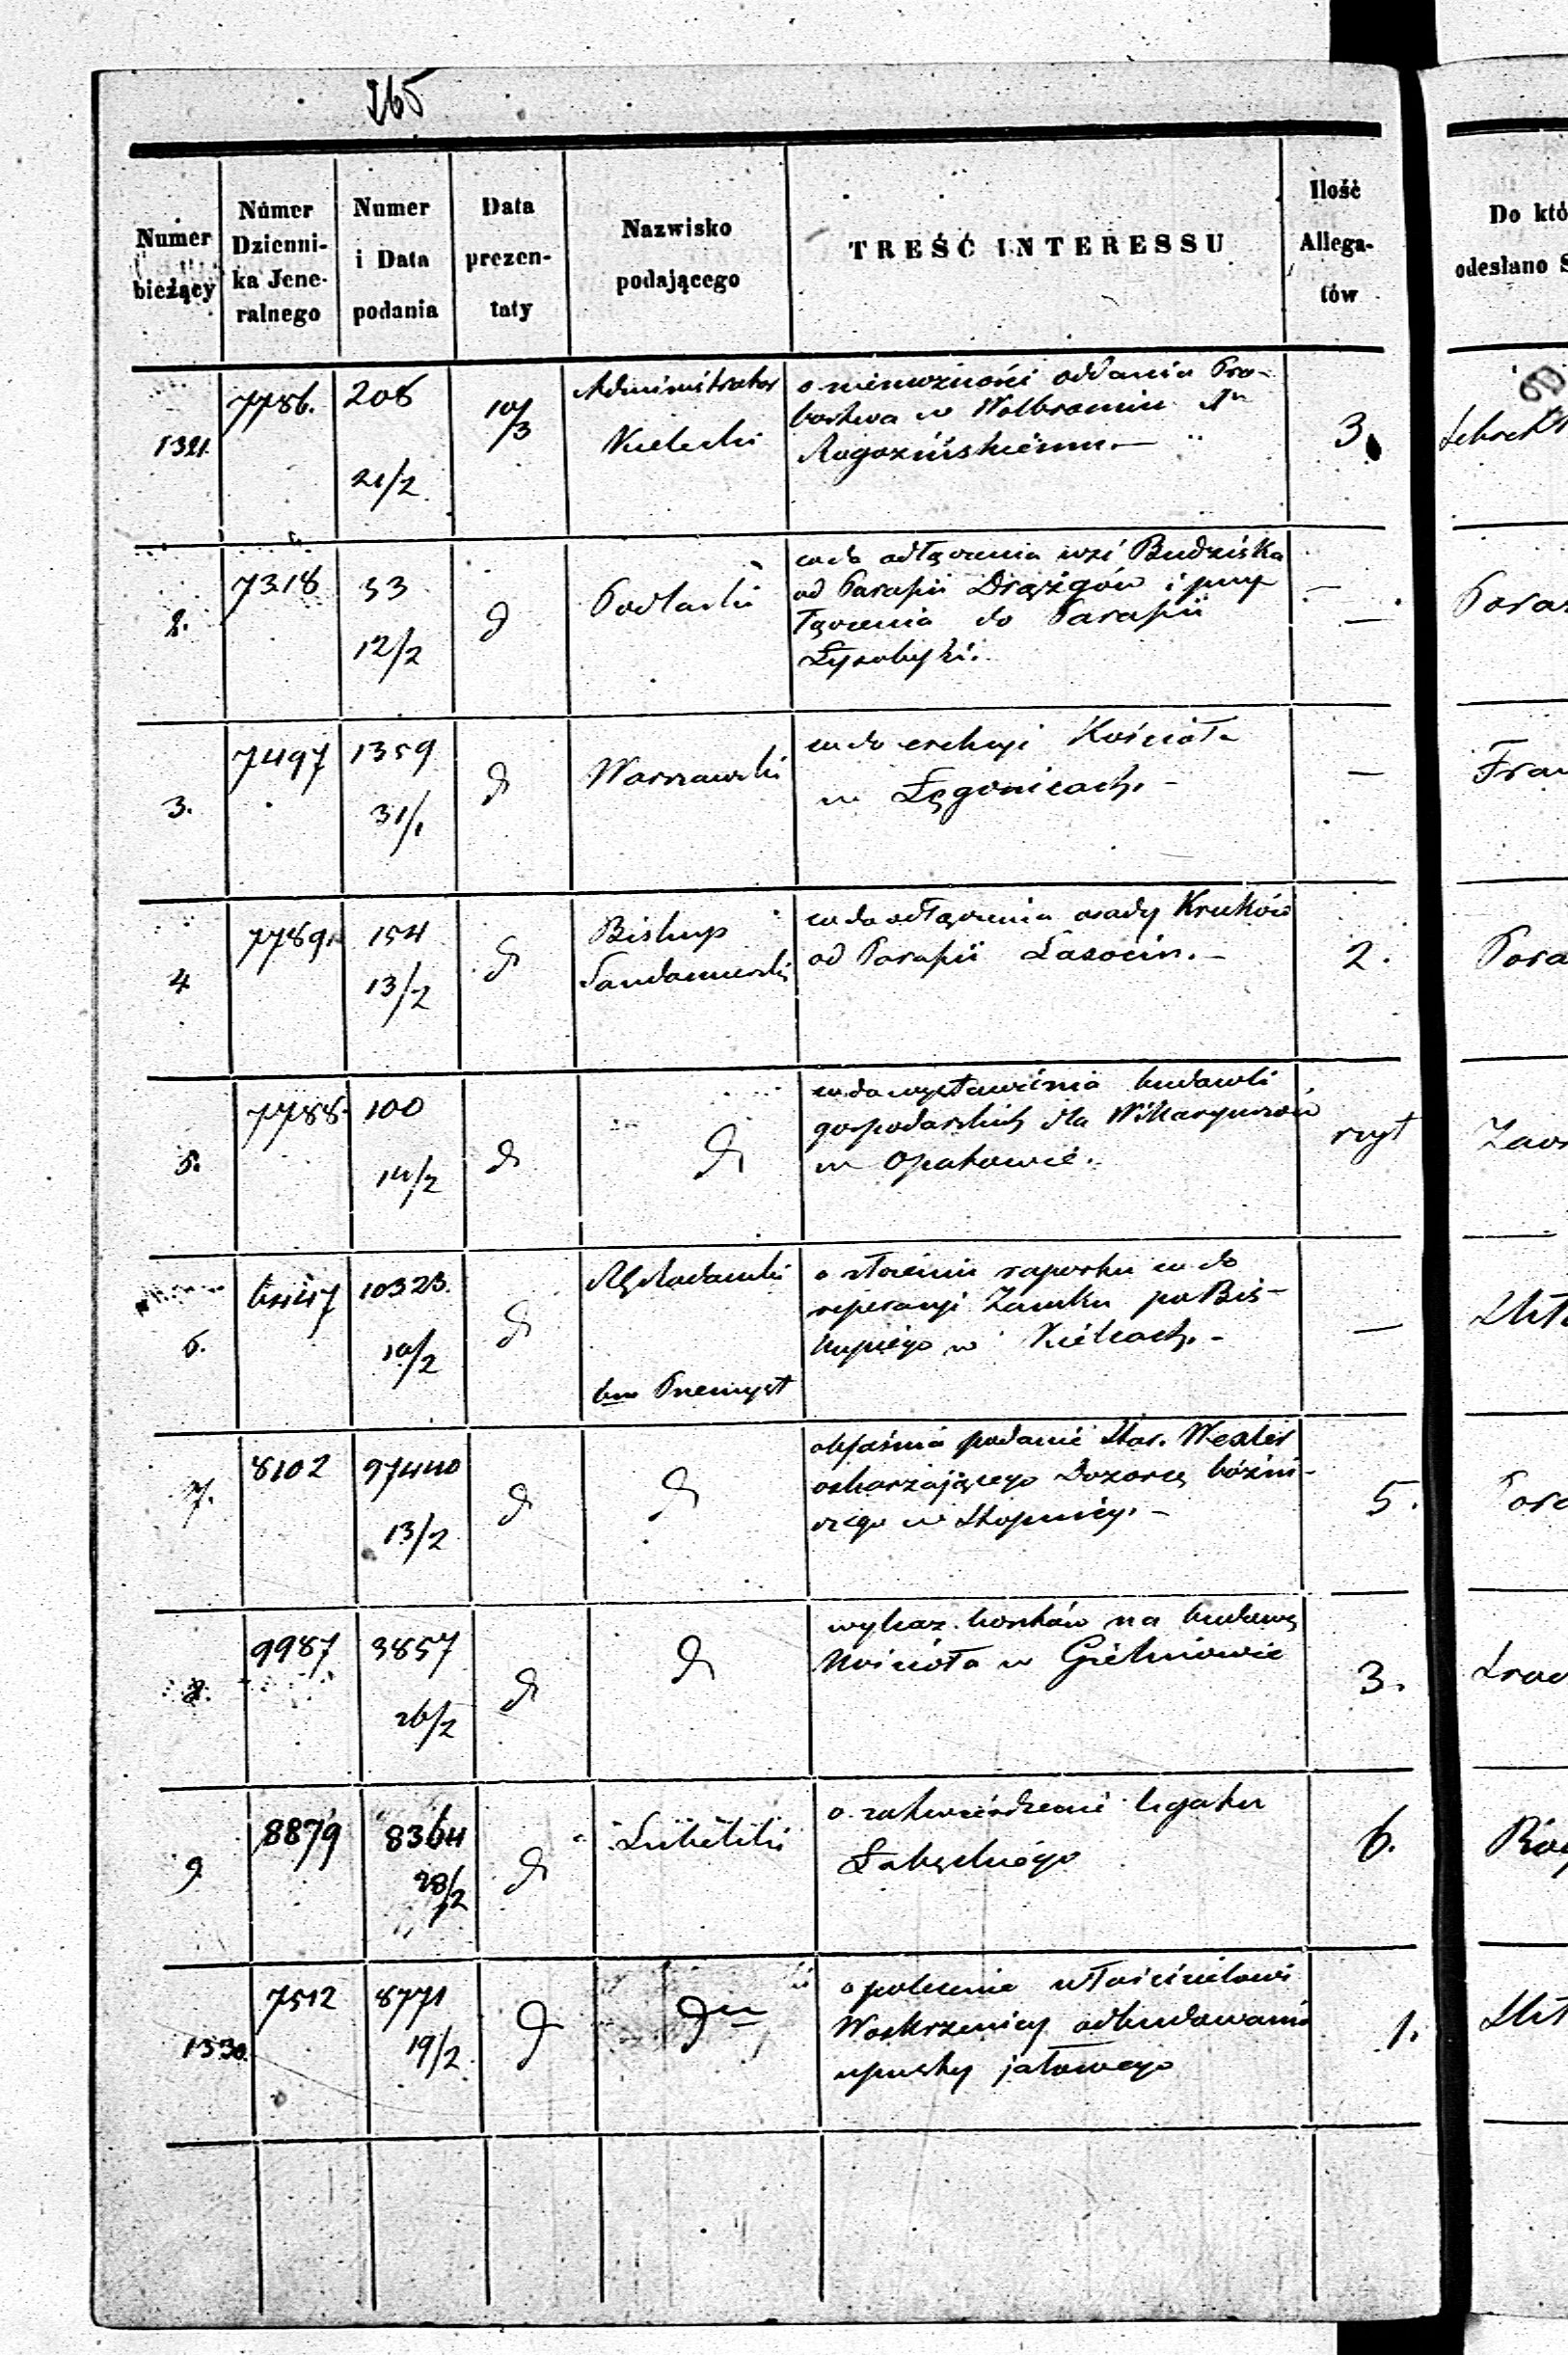 265
Numer bieżący
Numer Dziennika Jeneralnego
Numer i Data podania
Data prezentaty
Nazwisko podającego
TREŚĆ INTERESSU
Ilość Allegatów
Do któ
odesłano S
1321. 7786. 208 21/2 10/3 Administrator Kielecki
o niemożności oddania Pro-
bostwa w Wolbromiu
Rogozińskiemu.— 3.
2. 7318 53 12/2 d Podlaski
co do odłączenia wsi Budziska
od Parafii Drążgów i przy
łączenia do Parafii
Łysobyki. —
3. 7497 1359 31/1 d Warszawski
co do erekcyi Kościoła
w Łęgonicach. — —
4 7789. 154 13/2 d Biskup Sandomierski
co do odłączenia osady Kruków
od Parafii Lasocin. — 2.
5. 7788. 100 14/2 d d
co do wystawienia budowli
gospodarskich dla Wikaryuszów
w Opatowie. rszt
6. 10323. 10/2 d Rządu Radomski
bm Przemysł
o złożenie raportu co do
reperacyi Zamku po Bis-
kupiego w Kielcach. — —
7. 8102 97440 13/2 d d
objaśnia podanie Star. Wexler
oskarzającego Dozorcę bóżni-
czego w Stopnicy. — 5.
8. 9987 3857 26/2 d d
wykaz kosztów na budowę
Kościoła w Gielniowie 3.
9 8879 8364 28/2 d Lubelski
o zatwierdzenie legatu
Łabęckiego 6.
1330. 7512 8771 19/2 d dn
o polecenie właścicielowi
Woskrzenicy odbudowania
upustu jałowego 1.